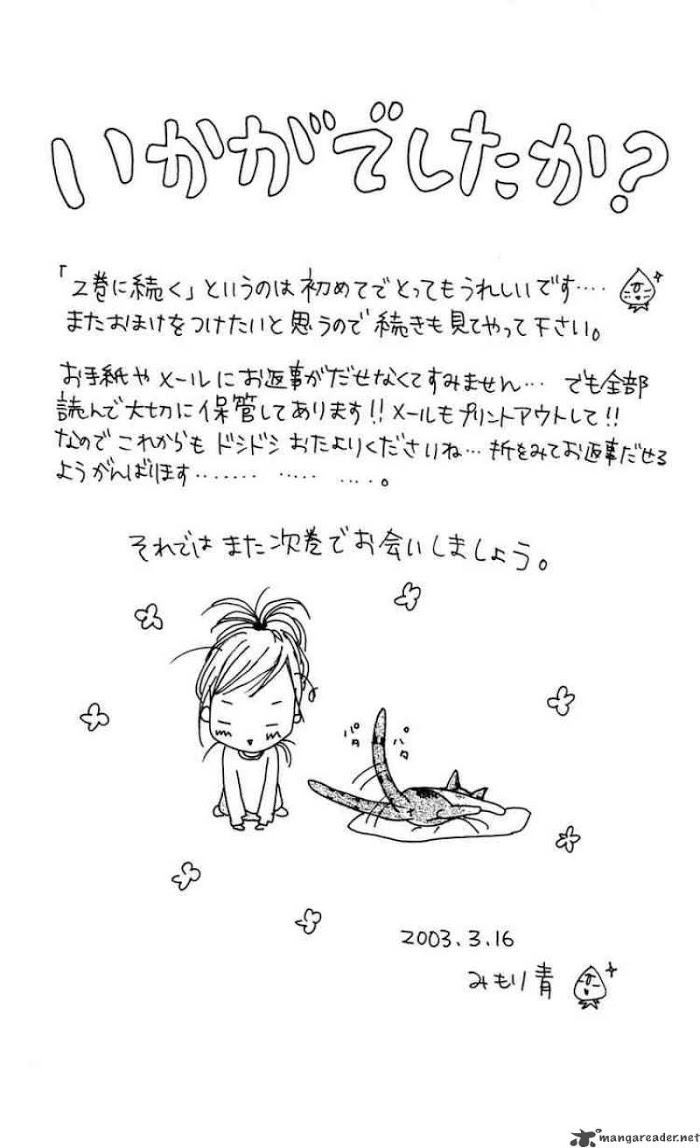 いかがでしたか?
「2巻に続く」というのは初めてでとってもうれしいです‥‥
またおまけをつけたいと思うので続きも見てやって下さい。
お手紙やメールにお返事がだせなくてすみません… でも全部
読んで大切に保管してあります!!メールもプリントアウトして!!
なのでこれからもドシドシおたよりくださいね…折をみてお返事だせる
ようがんばります‥‥‥‥ ‥‥‥ ‥‥。
それではまた次巻でお会いしましょう。
パタ
パタ
2003.3.16
みもり青
mangareader.net